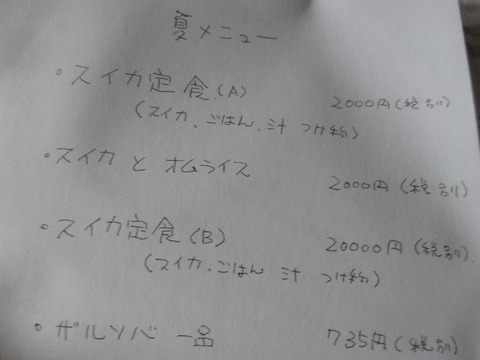 夏メニュー
・スイカ定食(A) 2000円(税別)
(スイカ、ごはん、汁 つけ物)
・スイカ と オムライス 2000円(税別)
・スイカ定食(B) 20000円(税別)
(スイカ、ごはん 汁 つけ物)
・ザルソバ 一品 735円(税別)